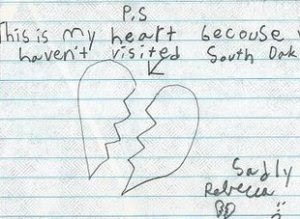 P.S
This is my heart becouse
haven't visited South Dak
Sadly
Rebecca